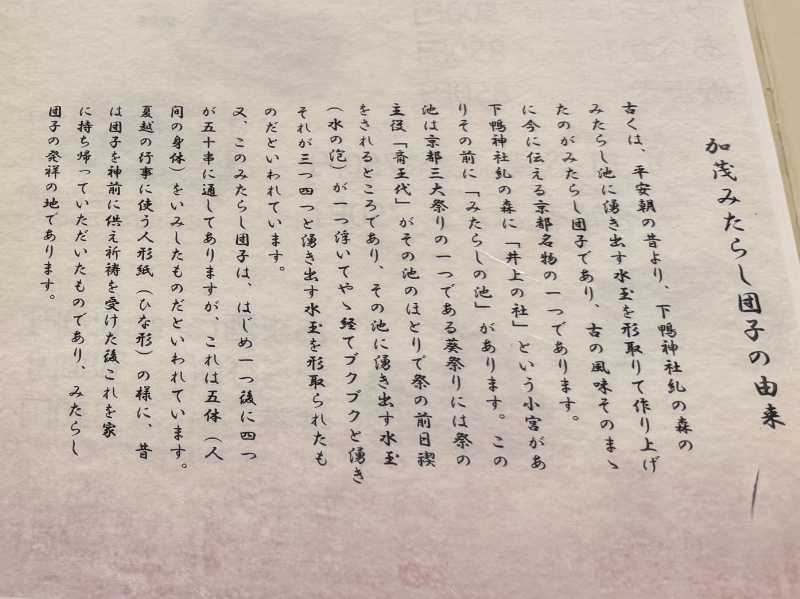 加茂みたらし団子の由来
古くは、平安朝の昔より、下鴨神社糺の森の
みたらし池に湧き出す水玉を形取りて作り上げ
たのがみたらし団子であり、古の風味そのまゝ
に今に伝える京都名物の一つであります。
下鴨神社糺の森に「井上の社」という小宮があ
りその前に「みたらしの池」があります。この
池は京都三大祭りの一つである葵祭りには祭の
主役「斎王代」がその池のほとりで祭の前日禊
をされるところであり、その池に湧き出す水玉
（水の泡）が一つ浮いてやゝ経てブクブクと湧き
それが三つ四つと湧き出す水玉を形取られたも
のだといわれています。
又、このみたらし団子は、はじめ一つ後に四つ
が五十串に通してありますが、これは五体（人
間の身体）をいみしたものだといわれています。
夏越の行事に使う人形紙（ひな形）の様に、昔
は団子を神前に供え祈祷を受けた後これを家
に持ち帰っていただいたものであり、みたらし
団子の発祥の地であります。